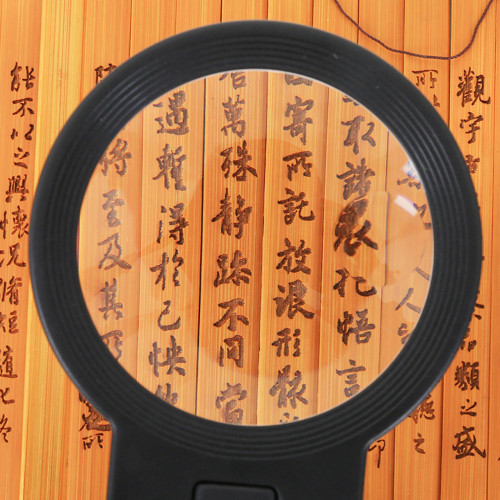 觀宇 類之盛
取諸懷抱悟言
寄所託放浪形骸
萬殊靜躁不同當
遇暫得於己怏然
將至及其所
能不以之興懷況脩短隨化終